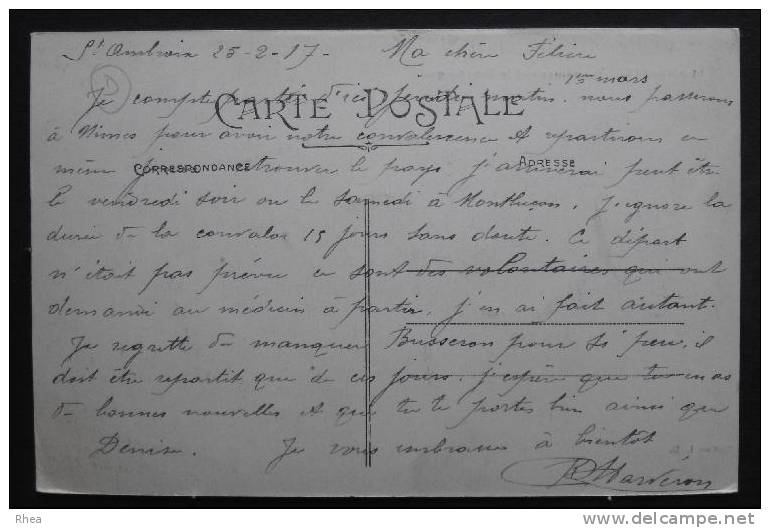 St Ambroix 25-2-17- Ma chère
1er mars
D
Je compte d'ici jeudi matin. nous passerons
CARTE POSTALE
à Nimes pour avoir notre convalescence et repartirons en
même trouver le pays j'arriverai peut être
CORRESPONDANCE ADRESSE
le vendredi soir ou le samedi à Montluçon. J'ignore la
durée de la convalo 15 jours sans doute. Ce départ
n'était pas prévu ce sont des volontaires qui ont
demandé au médecin à partir, j'en ai fait autant.
Je regrette de manquer Busseron pour si peu, il
doit être repartit que de ces jours. j'espère que tu en as
de bonnes nouvelles et que tu te portes bien ainsi que
Denise. Je vous embrasse à bientôt
Rhea
delcampe.net